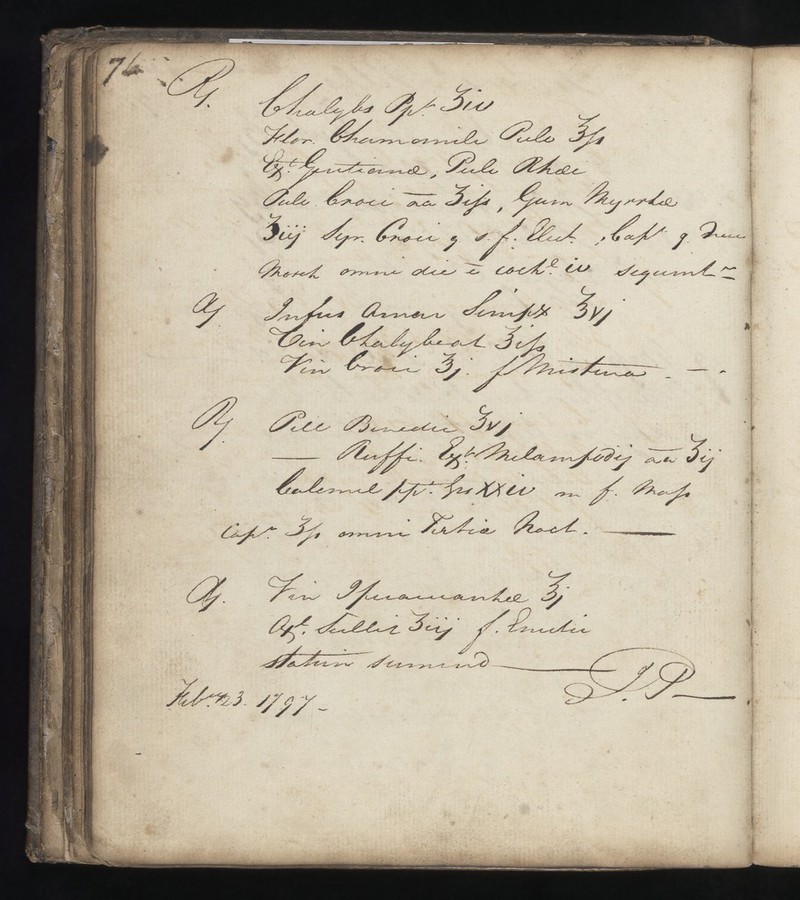 76
℞. Chalybs Ppt ʒiv
Flor. Chamomile Pulv ʒſs
Ext Gentianæ, Pulv Rhæi
Pulv Croci āā ʒiſs, Gum Myrrhæ
ʒiij Syr. Croci q s f. Elect. ; Capt q. Nuc
Mosch omni die c̄ coch. iv sequent
℞ Infus Amar Simpx ʒvj
Tin Chalybeat ʒiſs
Vin Croci ʒj. f Mistura . — .
℞ Pill Benedic ʒvj
— Ruffi. Ext Melampodij āā ʒij
Calomel ppt. Grs XXiv m f. Maſs
Capt ʒſs omni Tertia Noct. —
℞. Vin Ipecacuanhæ ʒj
Scillit ʒiij f. Emetic
statim sumend —— J. P—
Feby 23. 1797 -